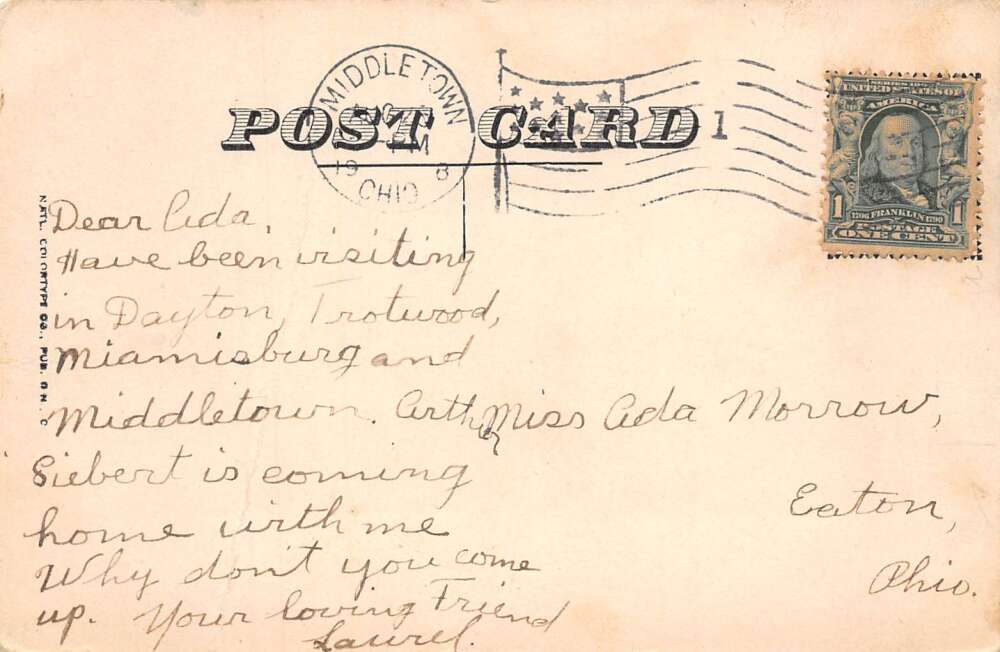 POST CARD
MIDDLETOWN
PM
19 8
OHIO
1
SERIES
UNITED STATES OF
AMERICA
1 1706 FRANKLIN 1790 1
POSTAGE
ONE CENT
NATL. COLORTYPE CO., PUB.
Dear Ada,
Have been visiting
in Dayton, Trotwood,
Miamisburg and
Middletown. Arthur
Siebert is coming
home with me
Why don't you come
up. Your loving Friend
Laurel.
Miss Ada Morrow,
Eaton,
Ohio.